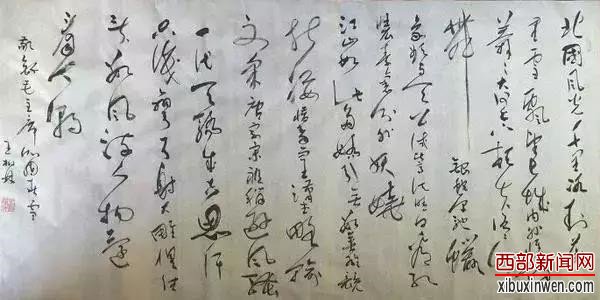 北國风光千里冰封万
里雪飘望长城内外惟
莽莽大河上下顿失滔
舞
银蛇原驰蜡
象欲与天公试比高须晴日看红
装素裹分外妖娆
江山如此多娇引无数英雄竞
折腰惜秦皇汉武略输
文采唐宗宋祖稍逊风骚
一代天骄成吉思汗
只识弯弓射大雕俱往
矣数风流人物还
看今朝
毛主席沁园春雪
王
西部新闻网
xibuxinwen.com